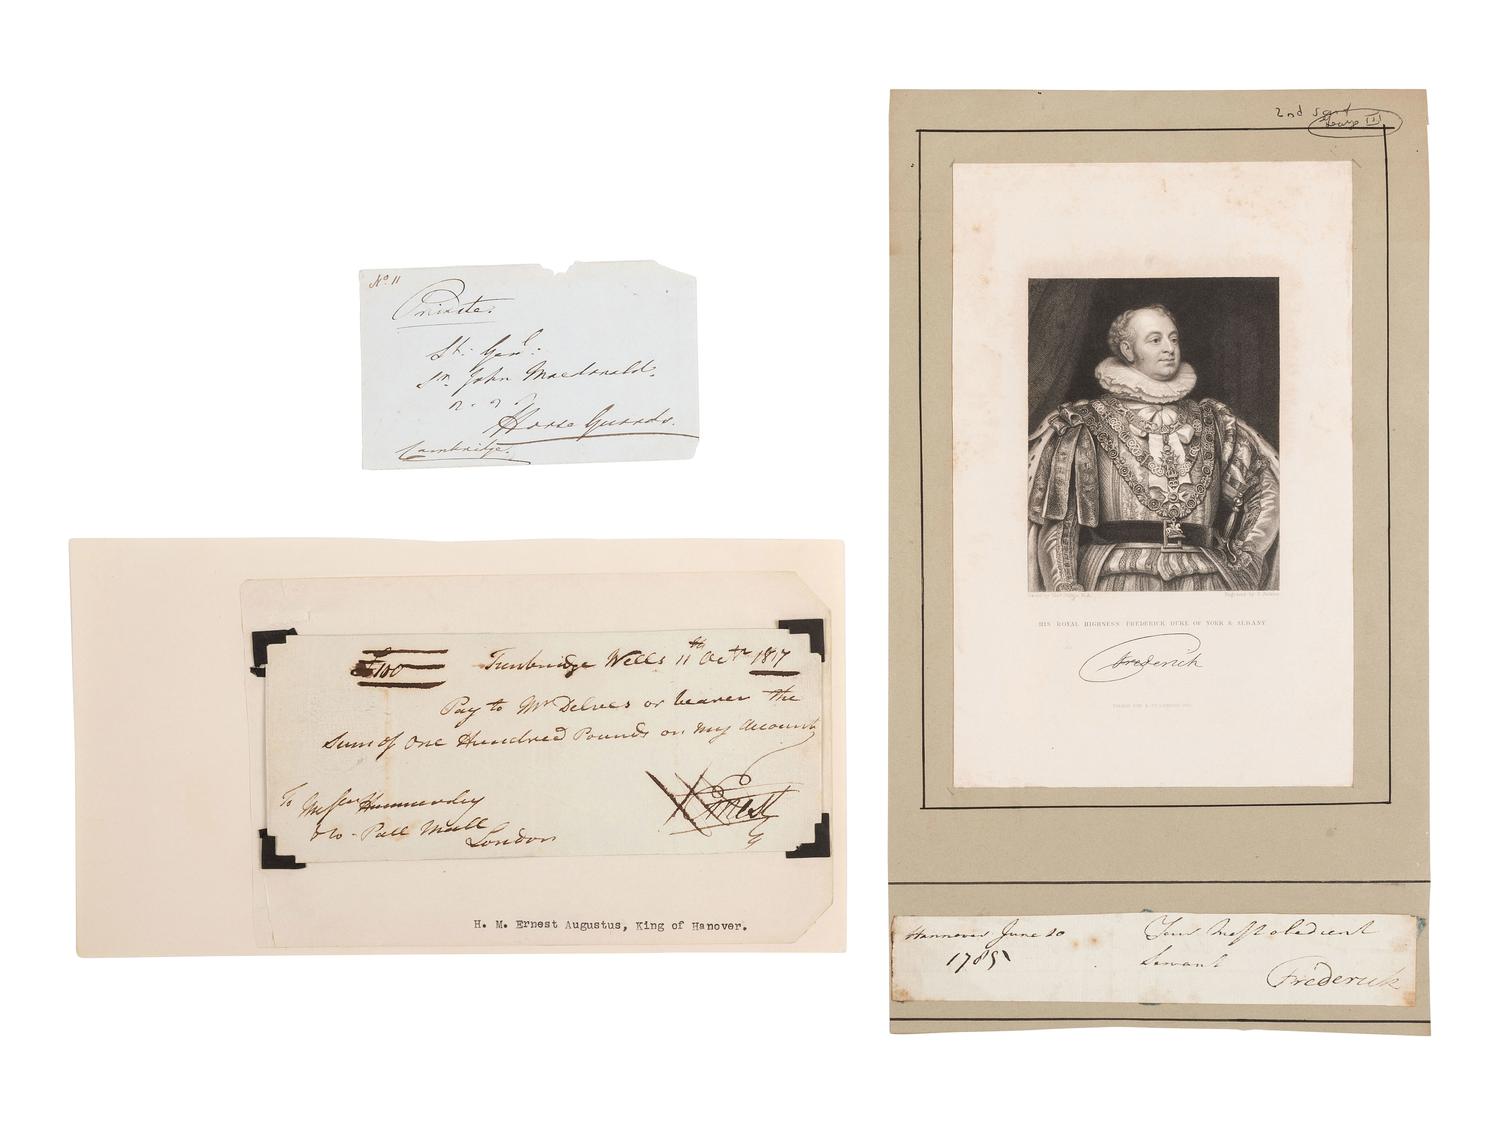 No. 11
Private.
Lt. Genl.
Sir John Macdonald.
Horse Guards.
Cambridge.
£100
Tunbridge Wells 11th Octr 1817
Pay to Mr Delves or bearer the
Sum of One Hundred Pounds on my Account
Ernest
To Messrs Hammersley
& Co. Pall Mall
London
H. M. Ernest Augustus, King of Hanover.
2nd son
George III
HIS ROYAL HIGHNESS FREDERICK DUKE OF YORK & ALBANY
Frederick
Hannover June 10
1785
Your Most obedient
Servant
Frederick